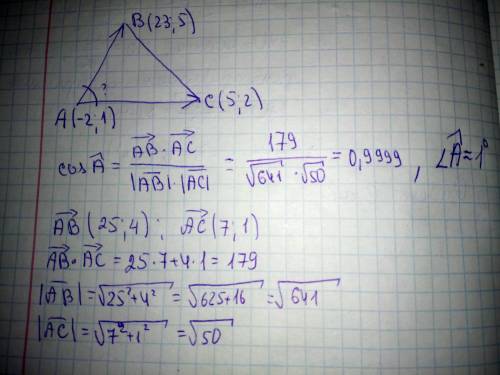 B(23;5)
?
A(-2;1) C(5;2)
cos Â = (AB⃗ · AC⃗) / (|AB⃗|·|AC⃗|) = 179 / (√641 · √50) = 0,9999 , ∠Â ≈ 1°
AB⃗ (25;4) ; AC⃗ (7;1)
AB⃗ · AC⃗ = 25·7+4·1 = 179
|AB⃗| = √(25²+4²) = √(625+16) = √641
|AC⃗| = √(7²+1²) = √50